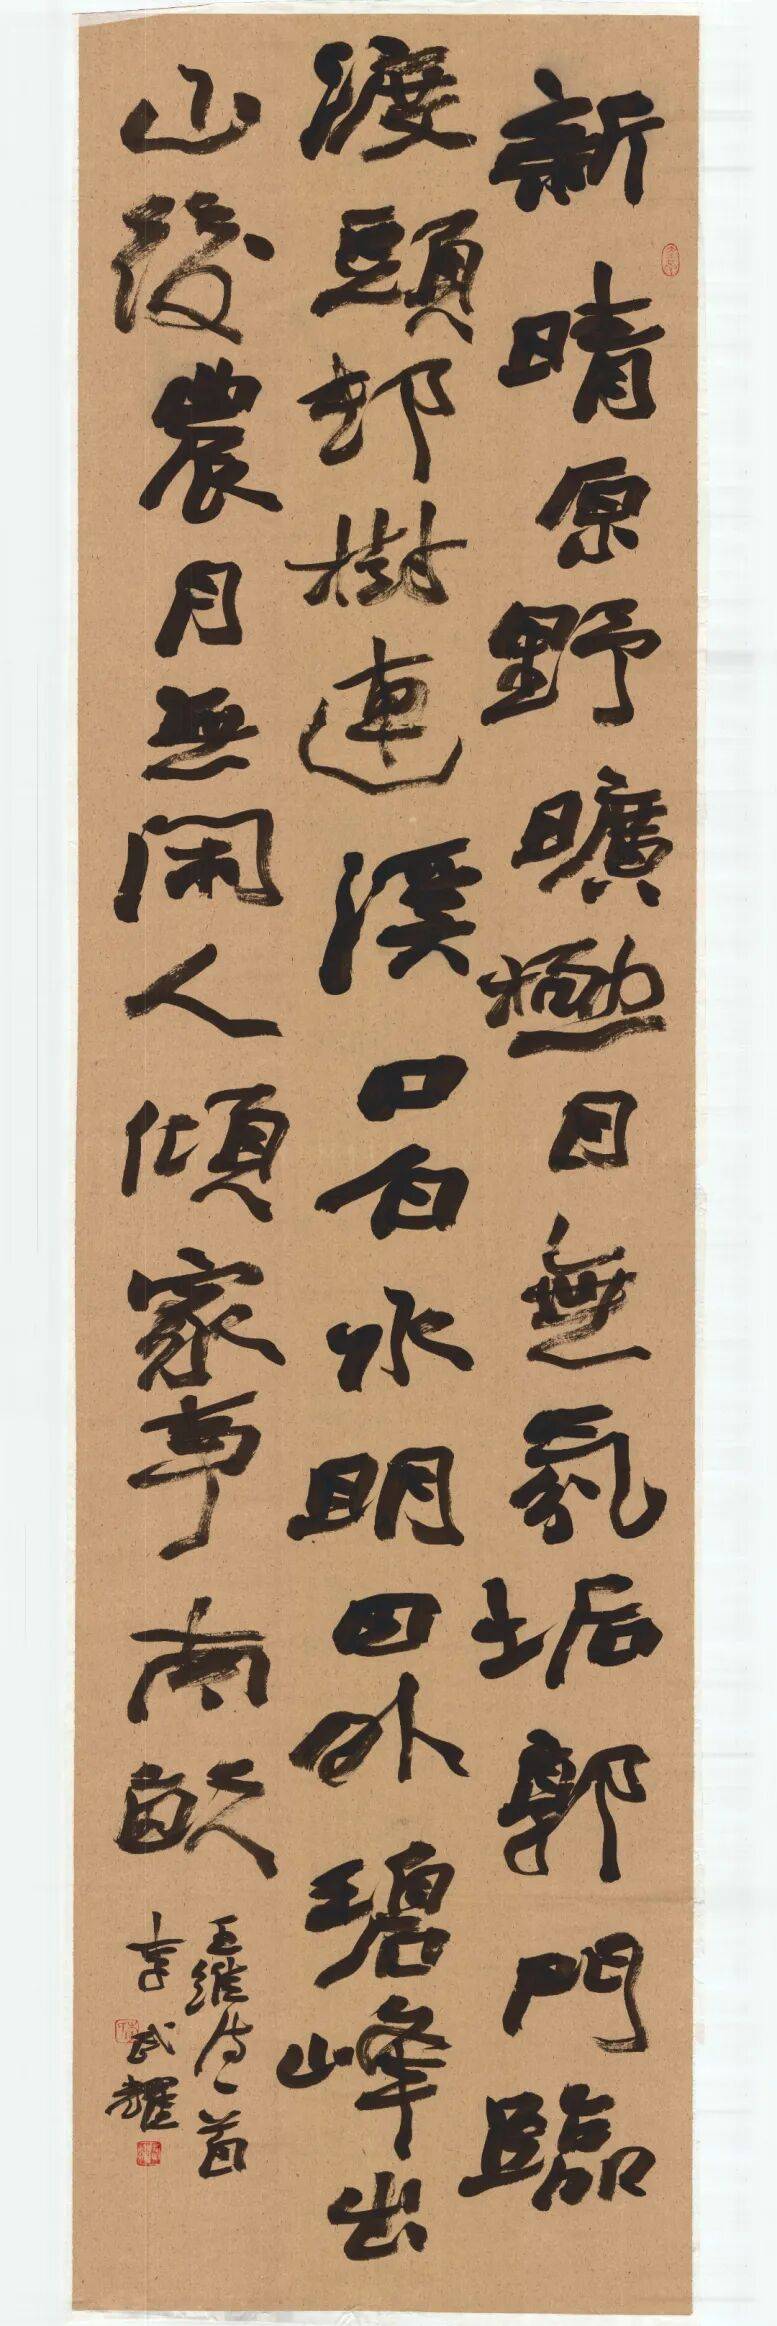 新晴原野曠極目無氛垢郭門臨
渡頭邨樹連溪口白水明田外碧峰出
山後農月無閑人傾家事南畝
王維詩一首
李武耀